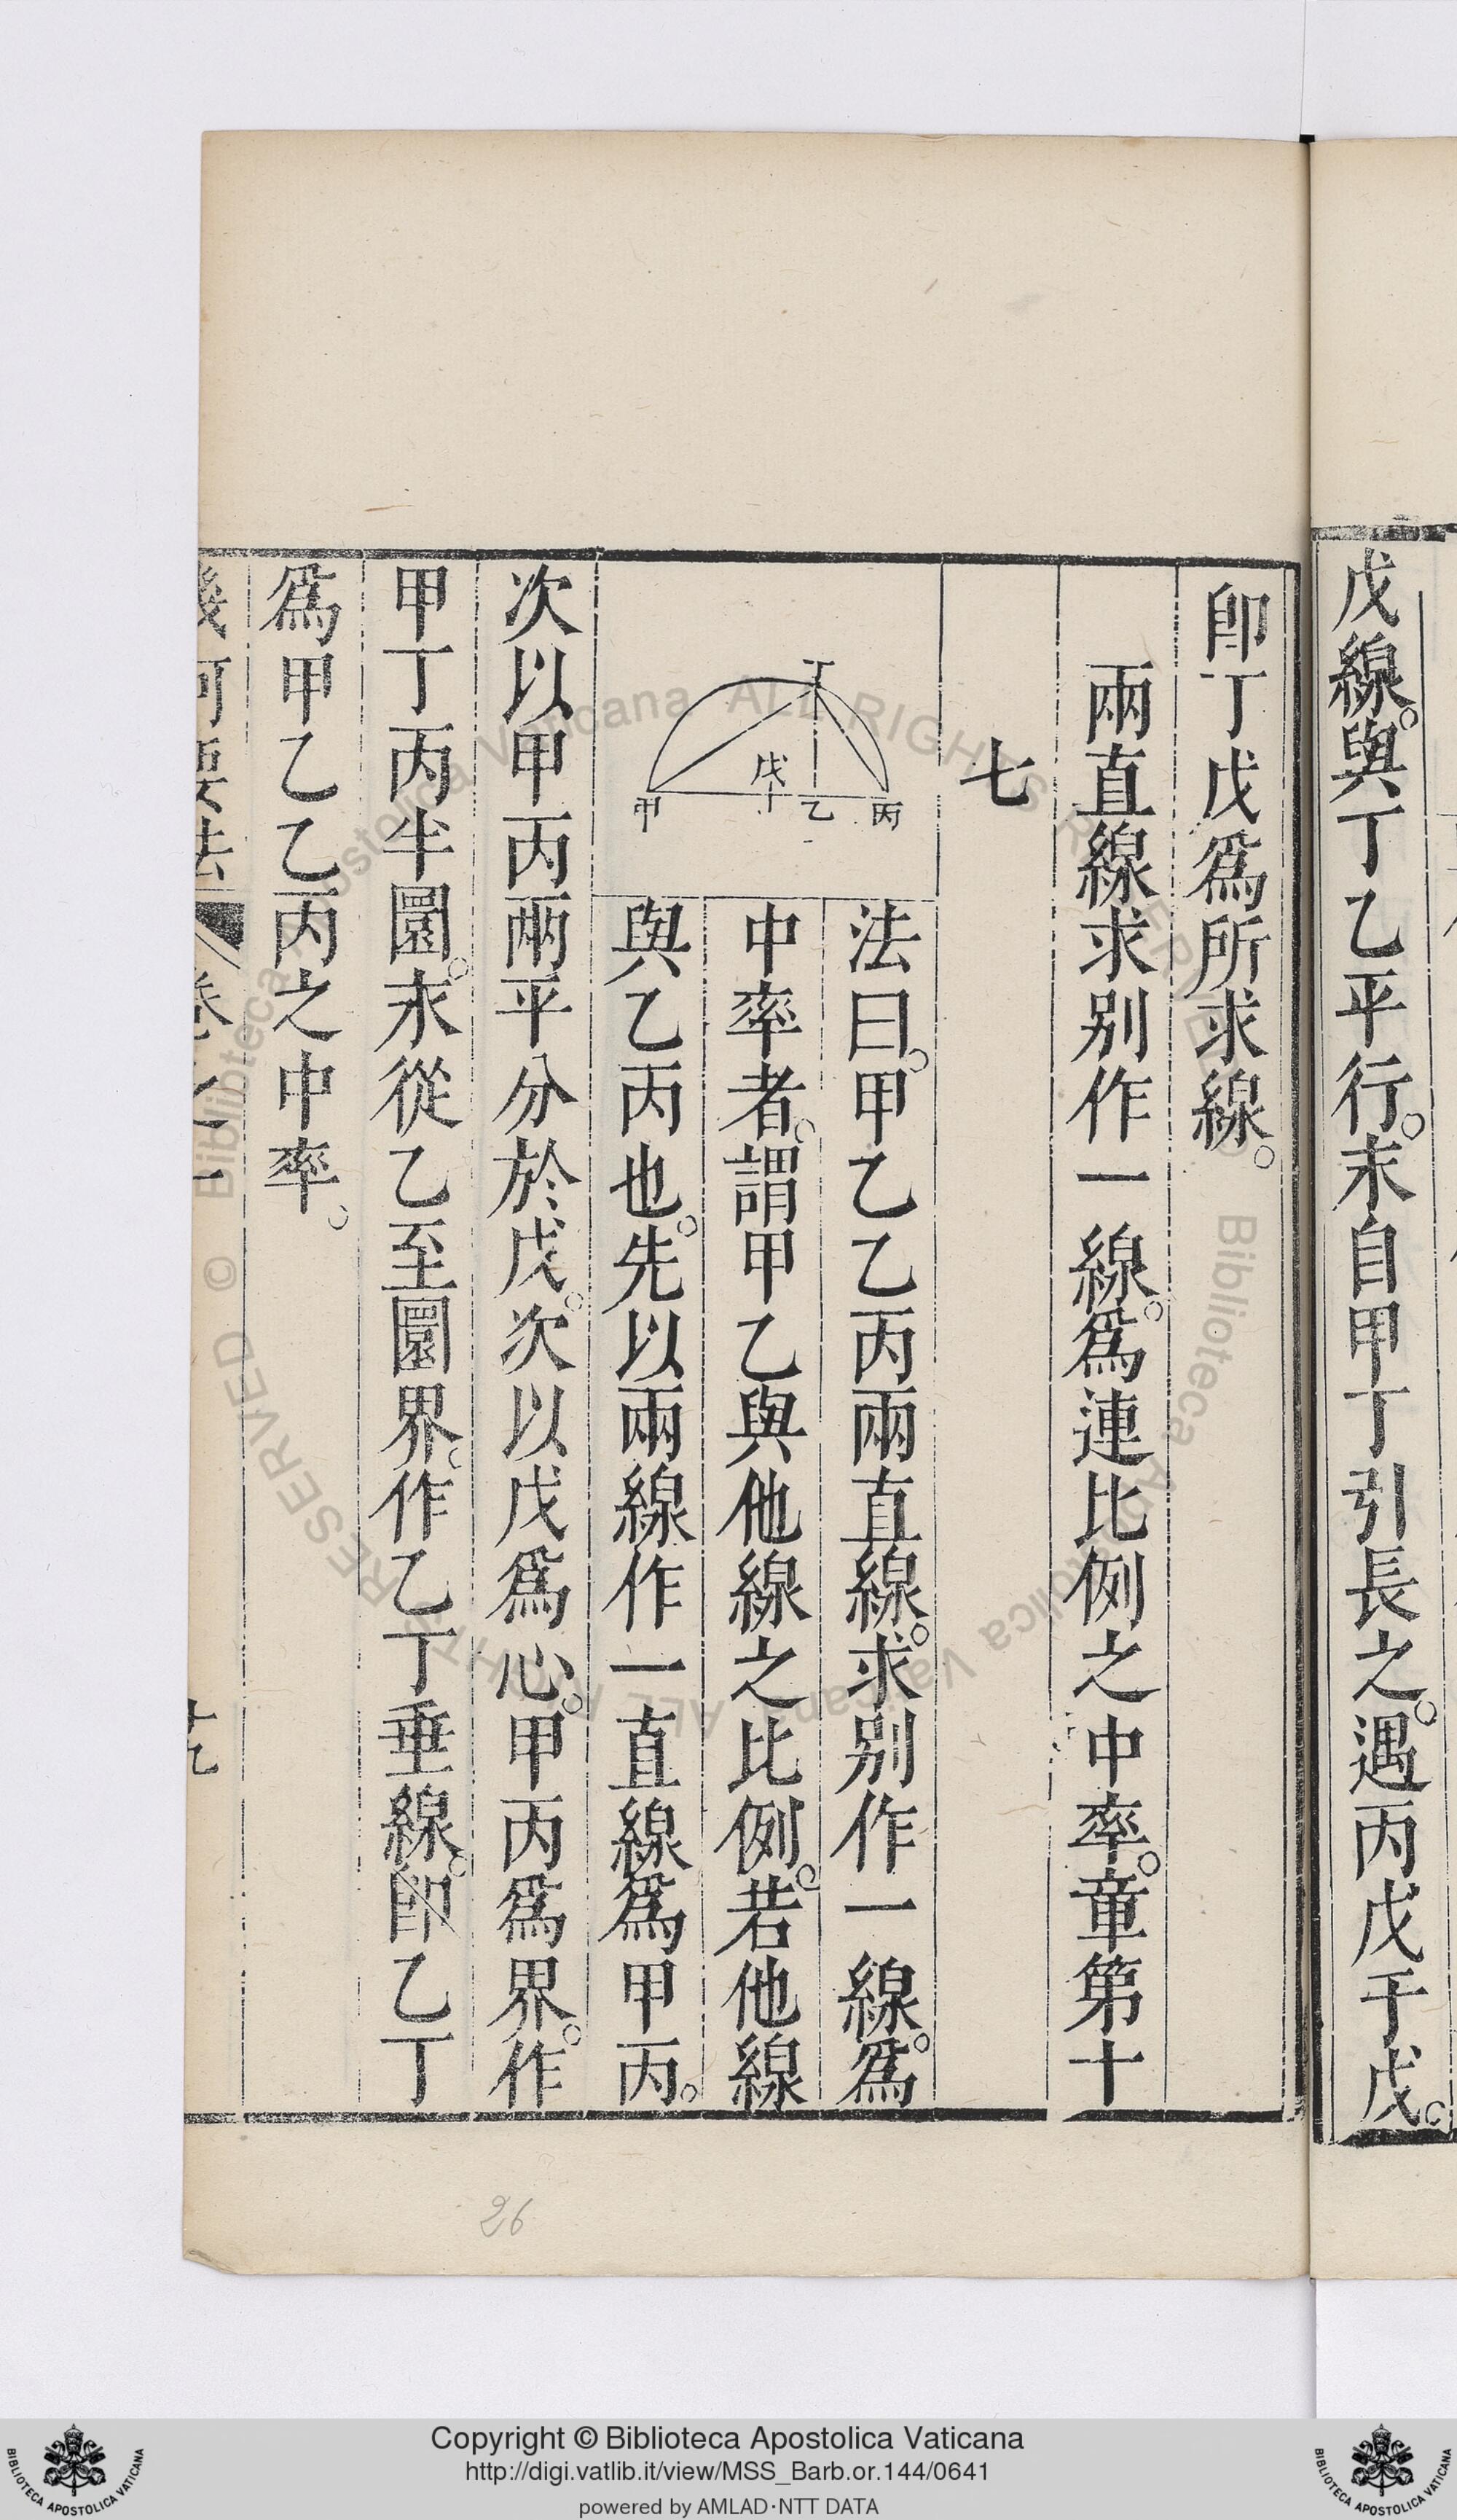 戊線。與丁乙平行。末自甲丁引長之。遇丙戊于戊。
卽丁戊爲所求線。
兩直線求別作一線。爲連比例之中率。章第十
七
丁
戊
甲
乙
丙
法曰。甲乙乙丙兩直線。求別作一線。爲
中率者。謂甲乙與他線之比例。若他線
與乙丙也。先以兩線作一直線爲甲丙。
次以甲丙兩平分於戊。次以戊爲心。甲丙爲界。作
甲丁丙半圜。末從乙至圜界。作乙丁垂線。卽乙丁
爲甲乙乙丙之中率。
幾何要法
26
Copyright © Biblioteca Apostolica Vaticana
http://digi.vatlib.it/view/MSS_Barb.or.144/0641
powered by AMLAD·NTT DATA
BIBLIOTECA APOSTOLICA VATICANA
BIBLIOTECA APOSTOLICA VATICANA
© Biblioteca Apostolica Vaticana ALL RIGHTS RESERVED
Biblioteca Apostolica Vaticana ALL RIGHTS RESERVED